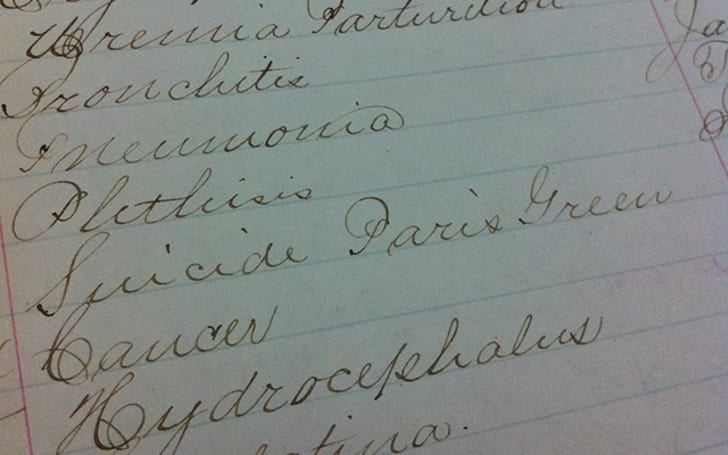 Uremia Parturition
Bronchitis
Pneumonia
Phthisis
Suicide Paris Green
Cancer
Hydrocephalus